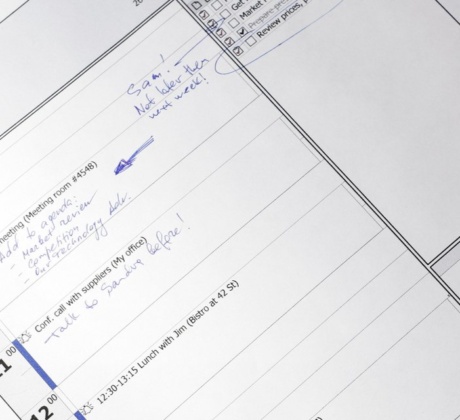 20
Get
Market
Prepare
Review prices, p
Sam!
Not later then
next week!
meeting (Meeting room #4548)
Add to agenda:
- Market review
- Competition
- Our Technology Adv.
Conf. call with suppliers (My office)
Talk to Sandra before!
11 00
12:30-13:15 Lunch with Jim (Bistro at 42 St)
12 00